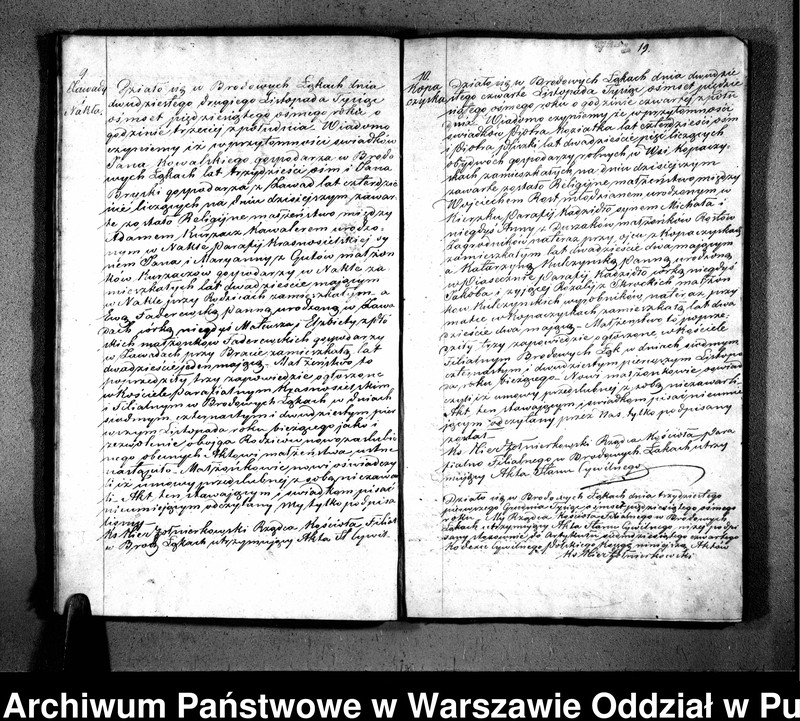 9
Zawady
Nakło.
Działo się w Brodowych Łąkach dnia
dwudziestego drugiego Listopada Tysiąc
ośmset pięćdziesiątego ósmego roku o
godzinie trzeciej z południa. Wiadomo
czynimy iż w przytomności świadków
Jana Kowalskiego gospodarza w Brodo
wych Łąkach lat trzydzieści ośm i Jana
Bryski gospodarza z Zawad lat czterdzie
ści liczących na dniu dzisiejszym zawar
te zostało Religijne małżeństwo między
Adamem Kurzacz Kawalerem urodzo-
nym w Nakle parafii Krasnosielskiej sy
nem Jana i Maryanny z Gutów małżon
ków Kurzaczów gospodarzy w Nakle za
mieszkałych lat dwadzieście mającym
w Nakle przy Rodzicach zamieszkałym. a
Ewą Saderewską panną urodzoną w Zawa
dach córką niegdyś Mateusza i Elżbiety
małżonków Saderewskich gospodarzy
w Zawadach przy Bracie zamieszkałą lat
dwadzieście jeden mającą.- Małżeństwo to
poprzedziły trzy zapowiedzie ogłoszone
w Kościele parafialnym Krasnosielskim
i Filialnym w Brodowych Łąkach w dniach
siódmym czternastym i dwudziestym pier
wszym Listopada roku bieżącego jako i
zezwolenie obojga Rodziców nowozaślubio
nego obecnych Aktowi małżeństwa ustne
nastąpiło. Małżonkowie nowi oświadczy
li iż umowy przedślubnej z sobą niezawar
li. Akt ten stawającym i świadkom pisać
nieumiejącym odczytany My tylko podpisa
liśmy.-
Ks Hier Żołnierkowski Rządca Kościoła Filial
w Brod Łąkach utrzymujący Akta St Cywil.
19.
10.
Kopa
czyska
Działo się w Brodowych Łąkach dnia dwudzie
stego czwarte Listopada Tysiąc ośmset pięćdzie
siątego ósmego roku o godzinie czwartej z połu
dnia. Wiadomo czynimy że w przytomności
świadków Piotra Koziatka lat czterdzieści ośm
i Piotra lat dwadzieście pięć liczących
obydwóch gospodarzy rolnych w Wsi Kopaczy
skach zamieszkałych na dniu dzisiejszym
zawarte zostało Religijne małżeństwo między
Wojciechem Rost młodzianem urodzonym w
Kierzku parafii Kadzidło synem Michała i
niegdyś Anny z Duszaków małżonków Rostów
Zagrodników na teraz przy ojcu z Kopaczyskach
zamieszkałym lat dwadzieście dwa mającym
a Katarzyną Kulczyńską panną urodzoną
w Piasecznie parafii Kadzidło córką niegdyś
Jakóba i żyjącej Rozalii z małżon
ków Kulczyńskich wyrobników na teraz przy
matce w Kopaczyskach zamieszkałą lat dwa
dzieście dwa mającą.- Małżeństwo to poprze
dziły trzy zapowiedzie ogłoszone w Kościele
Filialnym Brodowych Łąk w dniach siódmym
czternastym i dwudziestym pierwszym Listopa
da, roku bieżącego.- Nowi małżonkowie oświad
czyli iż umowy przedślubnej z sobą niezawarli.
Akt ten stawającym i świadkom pisać nieumie
jącym odczytany przez Nas tylko podpisany
został.-
Ks Hier Żołnierkowski Rządca Kościoła para
fialno Filialnego w Brodowych Łąkach utrzy
mujący Akta Stanu Cywilnego
Działo się w Brodowych Łąkach dnia trzydziestego
pierwszego Grudnia Tysiąc ośmset pięćdziesiątego ósmego
roku. My Rządca Kościoła Filialnego w Brodowych
Łąkach utrzymujący Akta Stanu Cywilnego niżej podpi
sany stosownie do Artykułu siedmdziesiątego czwartego
Kodexu Cywilnego polskiego Księgę niniejszą Aktów
Ks Hier Żołnierkowski
Archiwum Państwowe w Warszawie Oddział w Pu